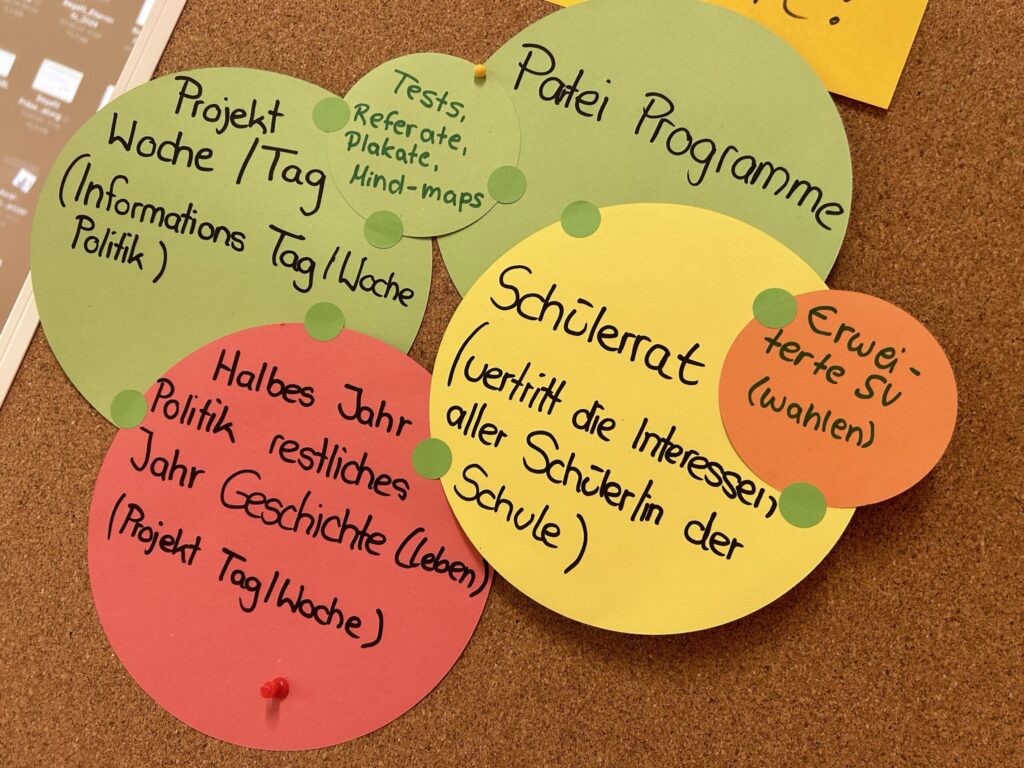 Projekt
Woche / Tag
(Informations Tag/Woche
Politik)
Tests,
Referate,
Plakate,
Mind-maps
Partei Programme
Schülerrat
(vertritt die Interessen
aller Schüler/in der
Schule)
Erwei-
terte SV
(wahlen)
Halbes Jahr
Politik restliches
Jahr Geschichte (Leben)
(Projekt Tag/Woche)